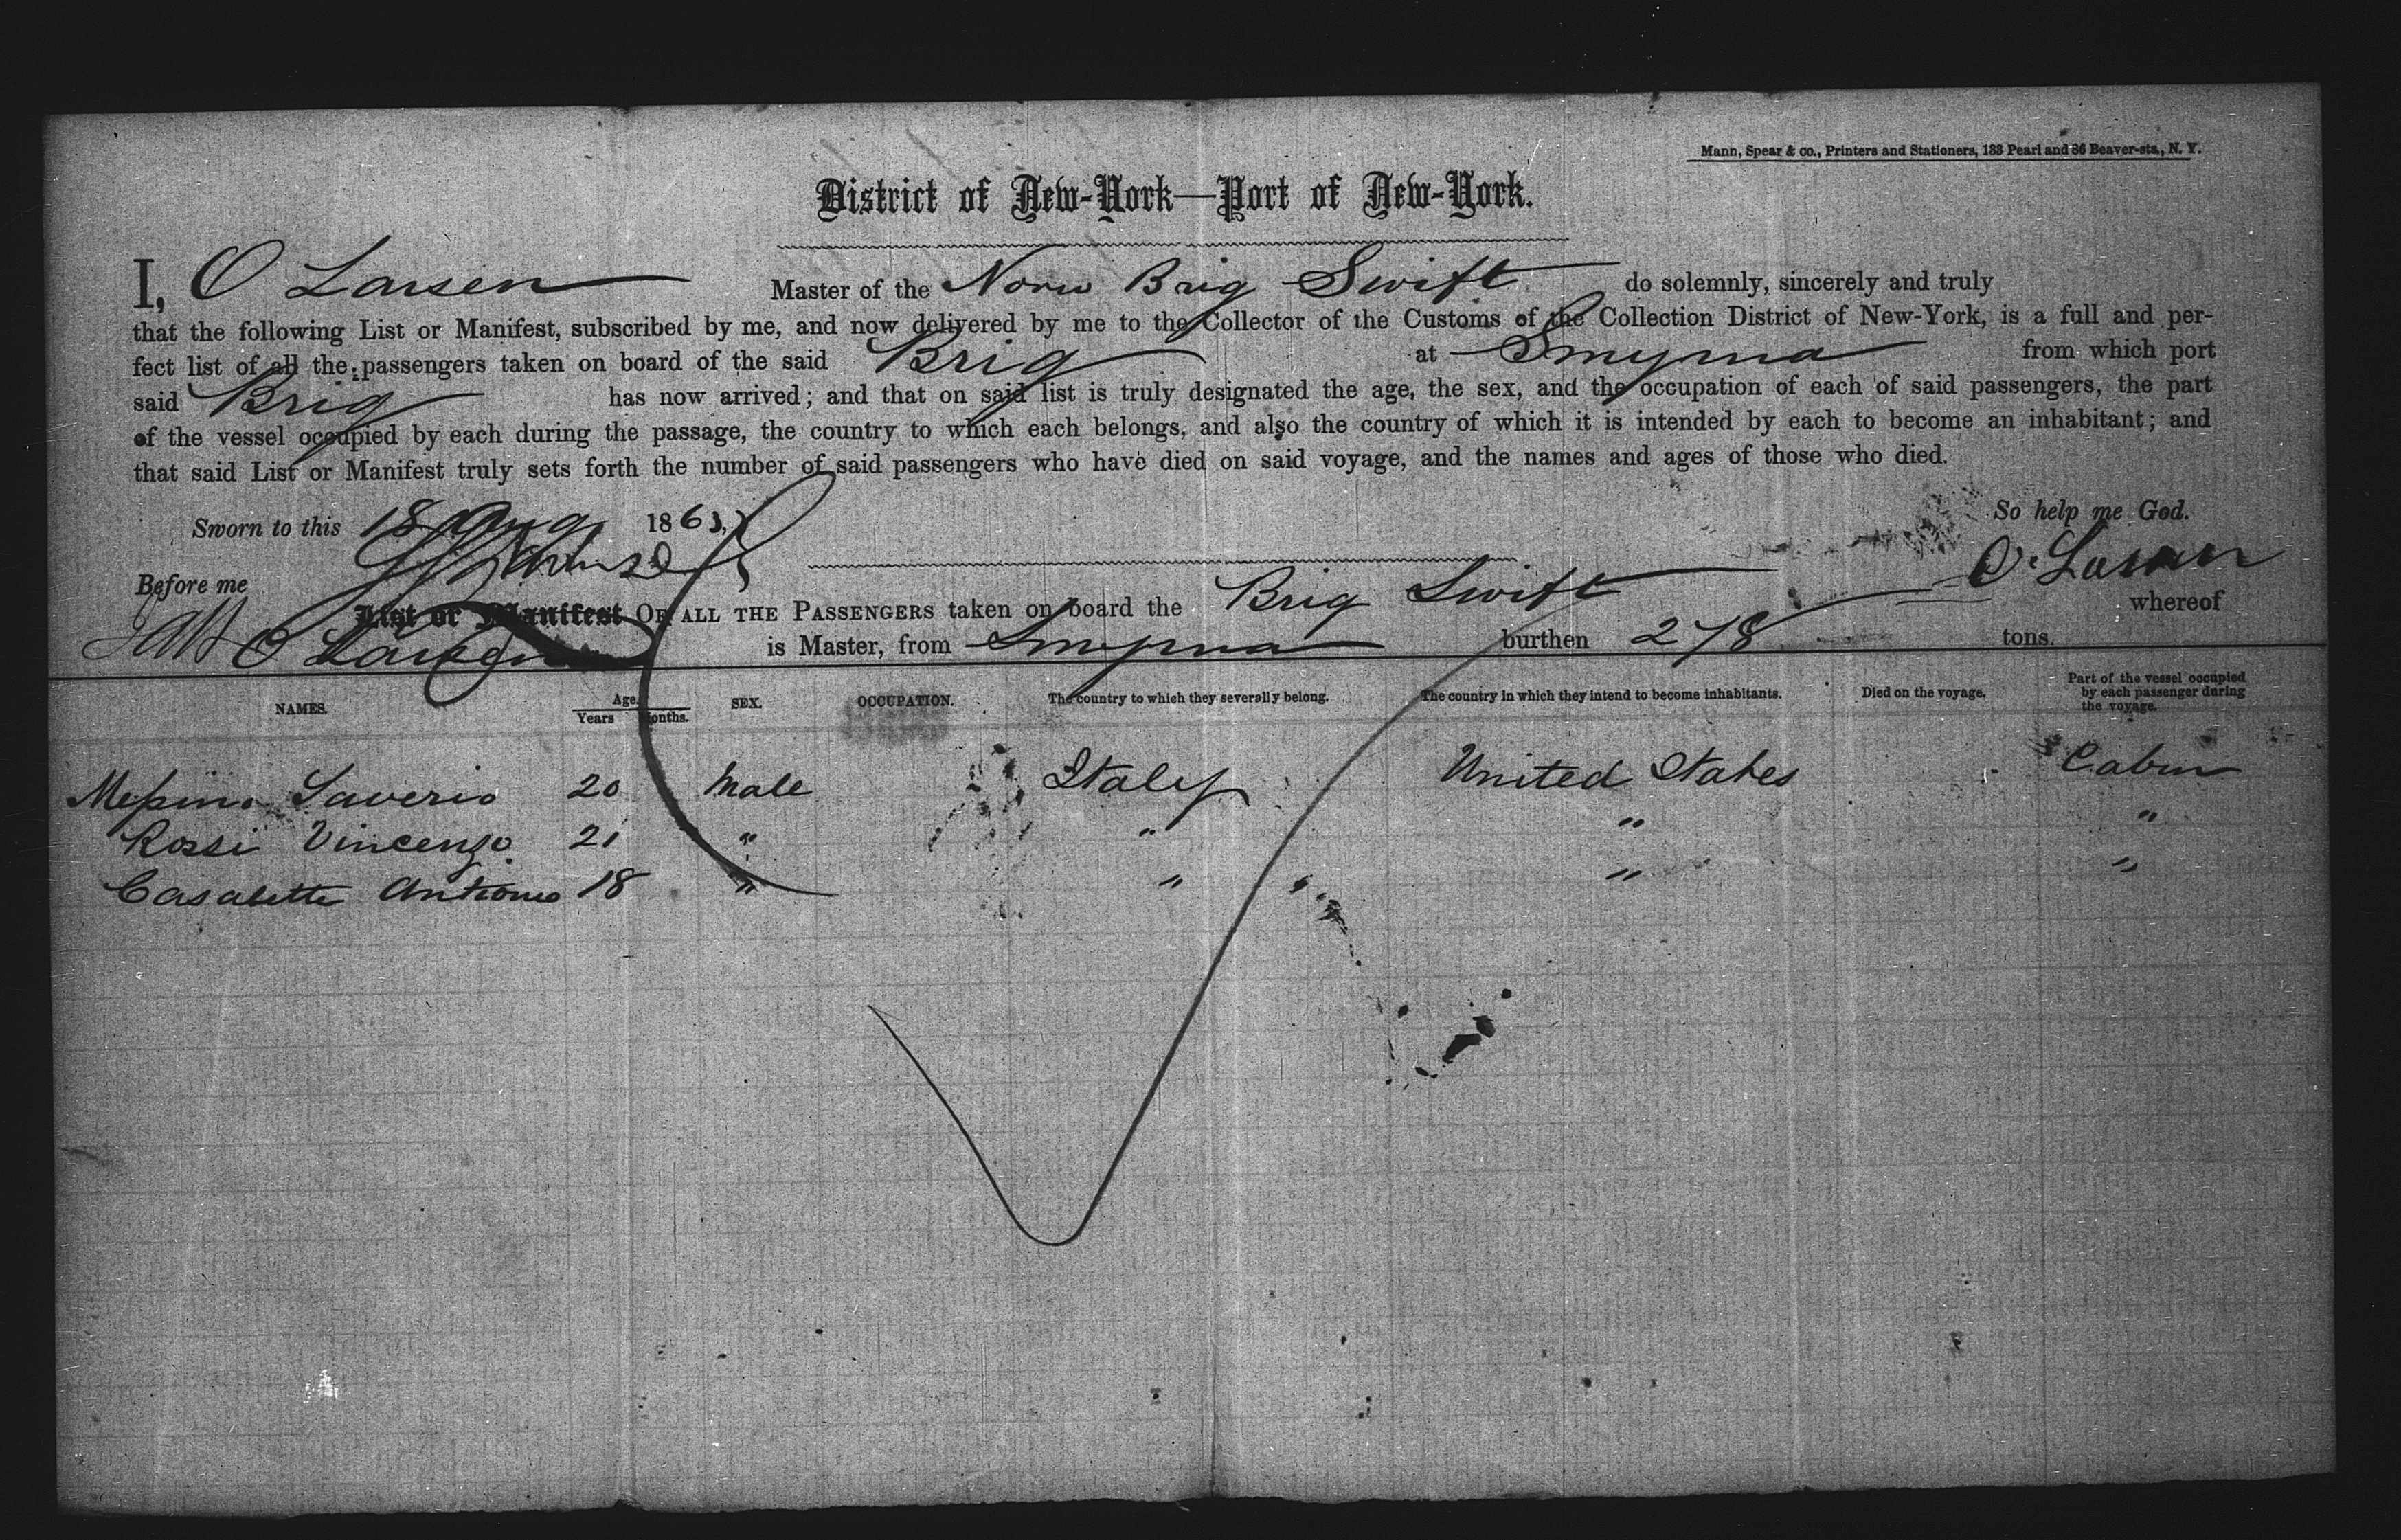 Mann, Spear & co., Printers and Stationers, 133 Pearl and 86 Beaver-sts., N. Y.
District of New-York—Port of New-York.
I, O Larsen Master of the Norw Brig Swift do solemnly, sincerely and truly
that the following List or Manifest, subscribed by me, and now delivered by me to the Collector of the Customs of the Collection District of New-York, is a full and per-
fect list of all the passengers taken on board of the said Brig at Smyrna from which port
said Brig has now arrived; and that on said list is truly designated the age, the sex, and the occupation of each of said passengers, the part
of the vessel occupied by each during the passage, the country to which each belongs, and also the country of which it is intended by each to become an inhabitant; and
that said List or Manifest truly sets forth the number of said passengers who have died on said voyage, and the names and ages of those who died.
Sworn to this 18 Aug 1863, So help me God.
Before me O. Larsen
List or Manifest OF ALL THE PASSENGERS taken on board the Brig Swift whereof
O Larsen is Master, from Smyrna burthen 278 tons.
NAMES. Age. Years Months. SEX. OCCUPATION. The country to which they severally belong. The country in which they intend to become inhabitants. Died on the voyage. Part of the vessel occupied by each passenger during the voyage.
Messina Saverio 20 Male Italy United States Cabin
Rossi Vincenzo 21 " " " "
Casabette Antonio 18 " " " "